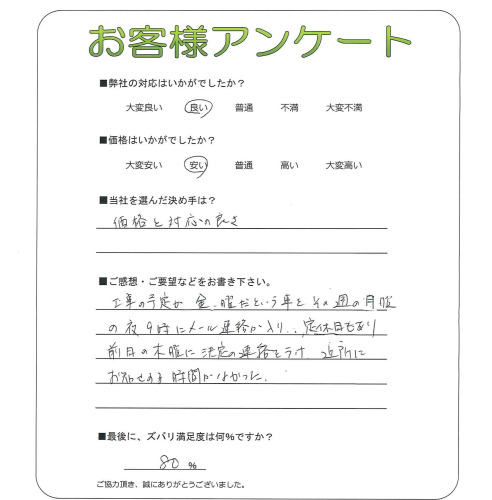 お客様アンケート
■弊社の対応はいかがでしたか？
大変良い 良い 普通 不満 大変不満
■価格はいかがでしたか？
大変安い 安い 普通 高い 大変高い
■当社を選んだ決め手は？
価格と対応の良さ
■ご感想・ご要望などをお書き下さい。
工事の予定が 金曜だという事を その週の月曜
の夜9時にメール連絡が入り、定休日もあり
前日の木曜に決定の連絡をうけ 近所に
お知せする時間がなかった.
■最後に、ズバリ満足度は何%ですか？
80 %
ご協力頂き、誠にありがとうございました。